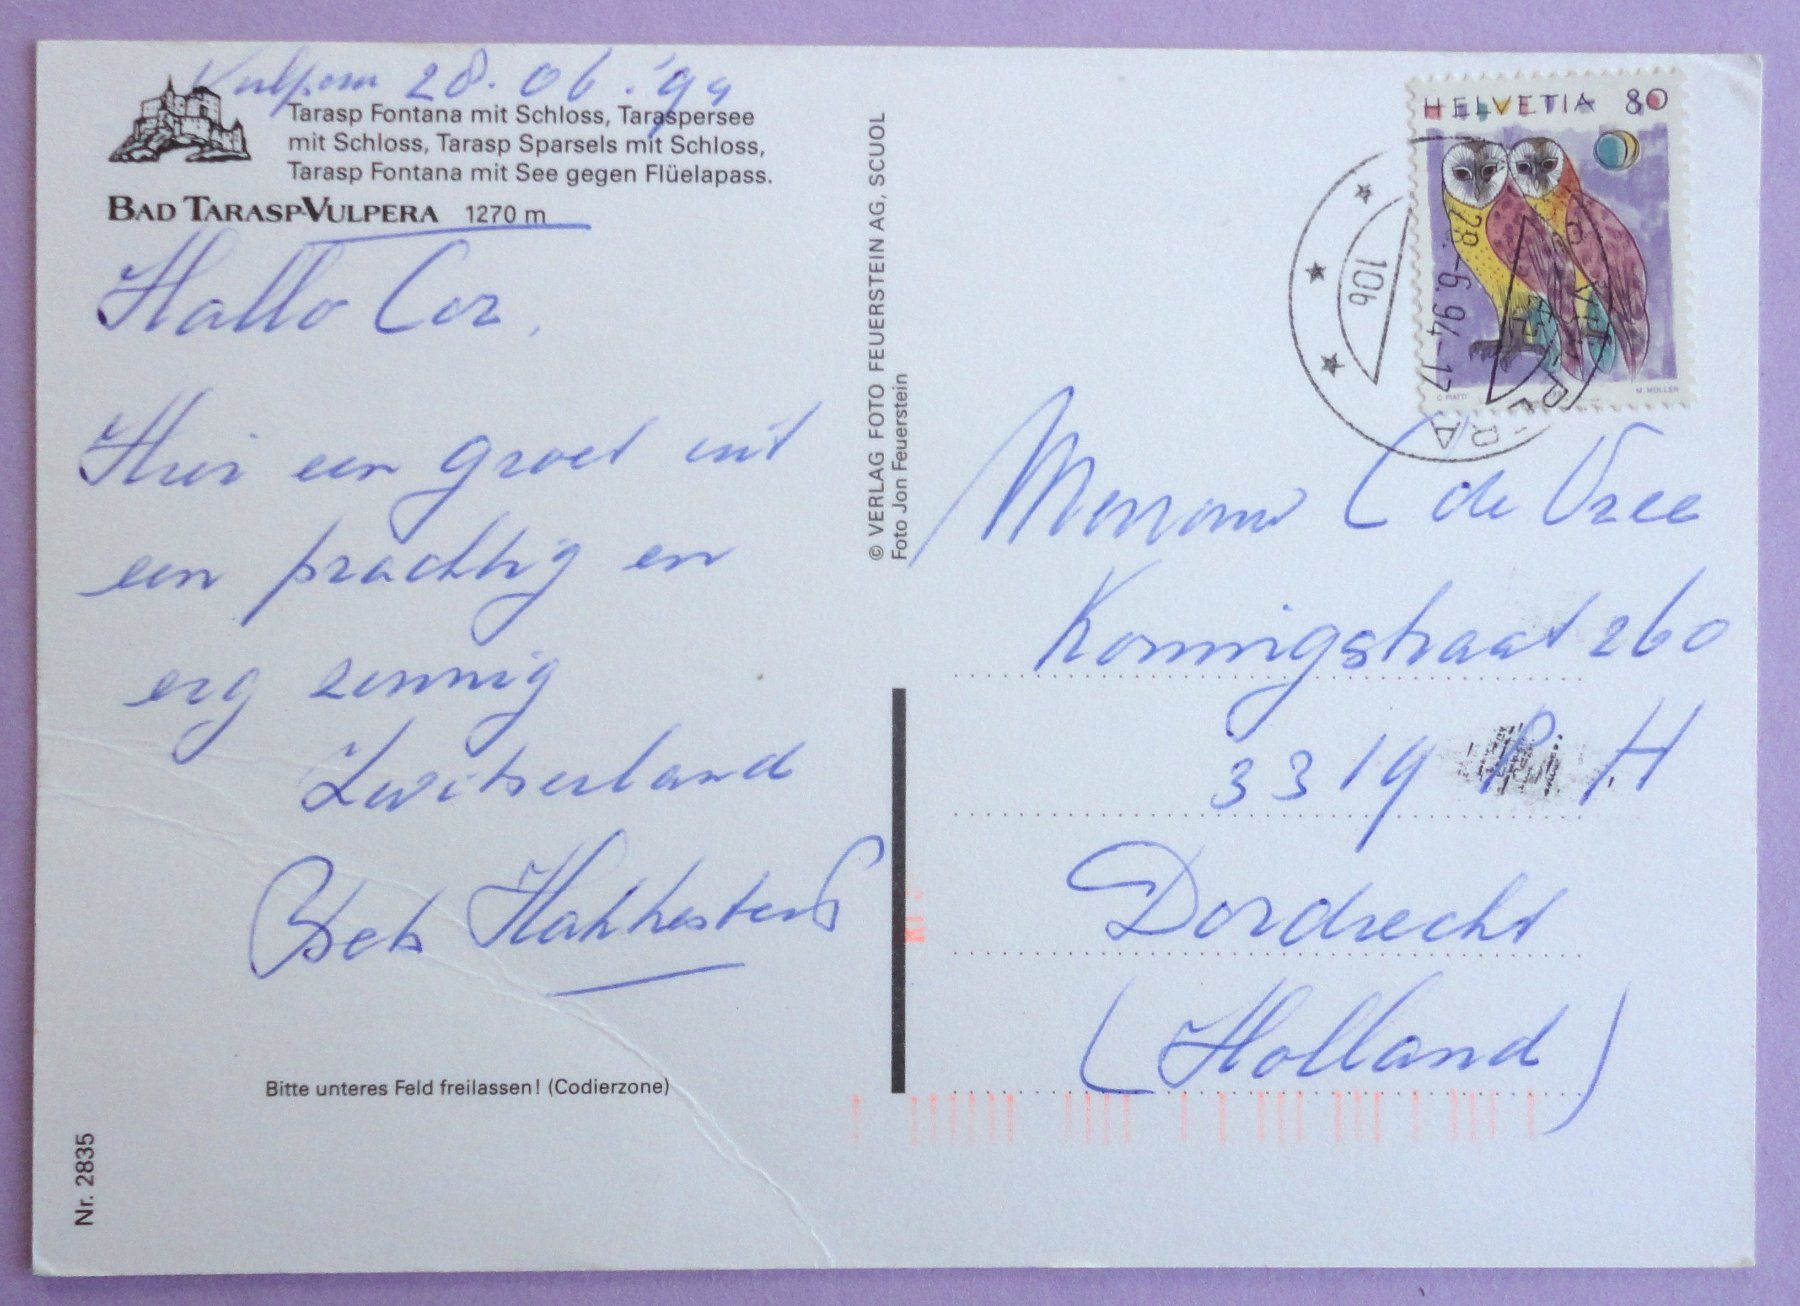 Vulpera 28.06.'94
Tarasp Fontana mit Schloss, Taraspersee
mit Schloss, Tarasp Sparsels mit Schloss,
Tarasp Fontana mit See gegen Flüelapass.
BAD TARASP-VULPERA 1270 m
Hallo Cor,
Hier een groet uit
een prachtig en
erg zonnig
Zwitserland
Bets
Bitte unteres Feld freilassen! (Codierzone)
Nr. 2835
© VERLAG FOTO FEUERSTEIN AG, SCUOL
Foto Jon Feuerstein
HELVETIA 80
C. PIATTI
M. MÜLLER
10b
28.-6.94-17
VULPERA
Mevrouw C de Vree
Konningstraat 260
3319 PH
Dordrecht
(Holland)